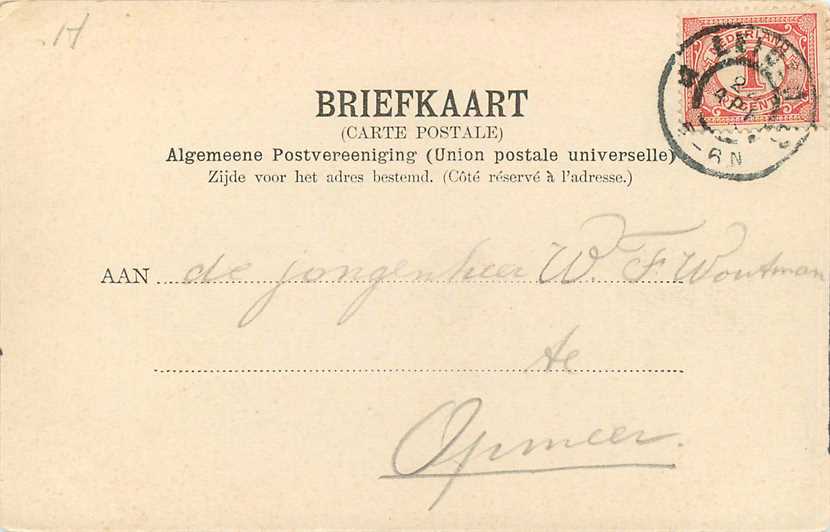 H
NEDERLAND
1
CENT
BRIEFKAART
(CARTE POSTALE)
Algemeene Postvereeniging (Union postale universelle)
Zijde voor het adres bestemd. (Côté réservé à l'adresse.)
AAN de jongenheer W. F. Woutman
te
Opmeer.